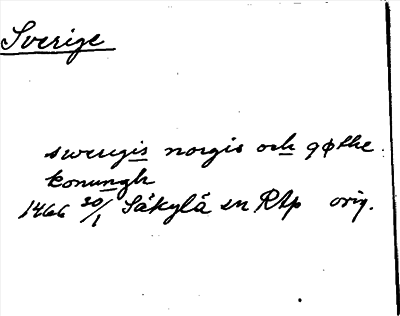 Sverige
swerigis norgis och gøthe
konungh
1466 30/1 Säkylä sn Rtp orig.